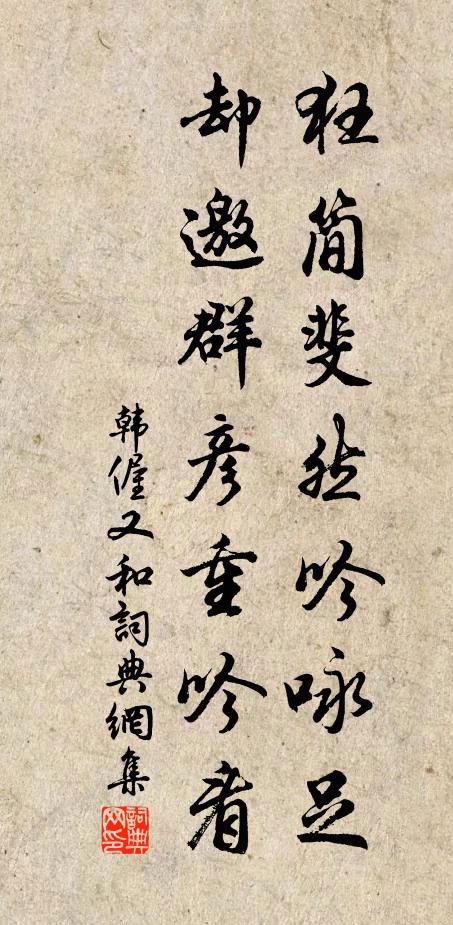 狂简斐然吟咏足
却邀群彦重吟看
韩偓又和詞典網集
詞典網印